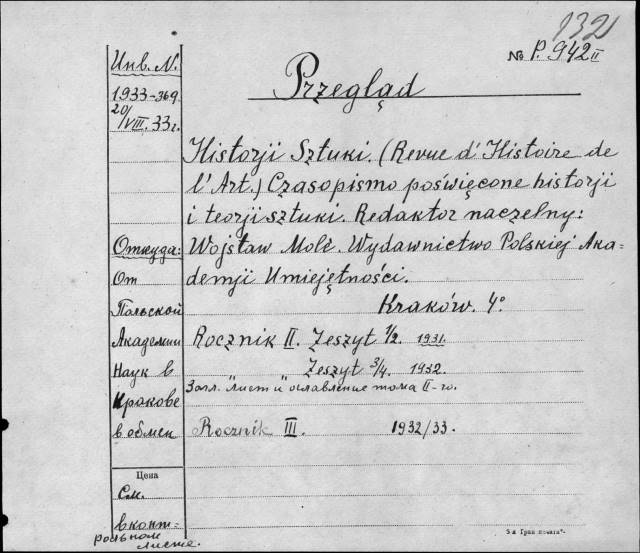 132
№ P. 942 II
Инв. N.
Przegląd
1933-369
20/VIII. 33 г.
Historji Sztuki. (Revue d'Histoire de
l'Art.) Czasopismo poświęcone historji
i teorji sztuki. Redaktor naczelny:
Откуда: Wojsław Molè. Wydawnictwo Polskiej Aka-
От demji Umiejętności.
Польской Kraków. 4º
Академии Rocznik II. Zeszyt 1/2. 1931.
Наук в Zeszyt 3/4. 1932.
Загл. "лист и оглавление тома II-го.
Кракове
в обмен Rocznik III. 1932/33.
Цена
См.
в конт-
рольном
листе.